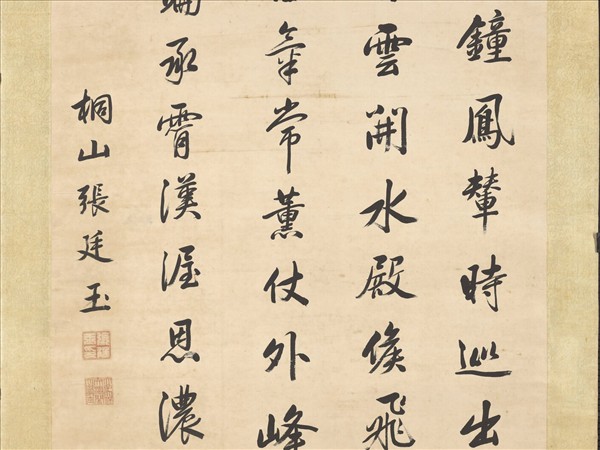 鐘鳳輦時巡出
雲開水殿候飛
氣常薰仗外峰
承霄漢渥恩濃
桐山張廷玉